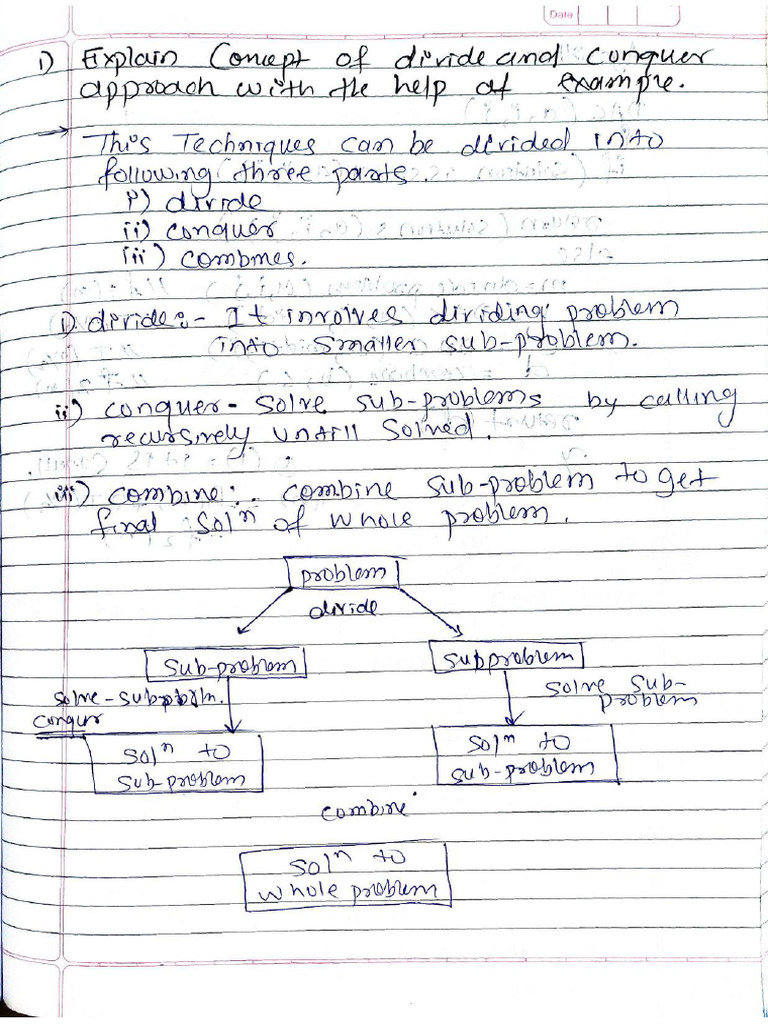 Date
1) Explain Concept of divide and conquer
approach with the help of example.
→ This Techniques can be divided into
following three parts.
i) divide
ii) conquer
iii) combines.
i) divide:- It involves dividing problem
into smaller sub-problem.
ii) conquer - solve sub-problems by calling
recursively untill solved.
iii) combine:. combine sub-problem to get
final solⁿ of whole problem.
problem
divide
sub-problem
subproblem
solve-subproblm.
conqur
solve sub-
problem
solⁿ to
sub-problem
solⁿ to
sub-problem
combine
solⁿ to
whole problem